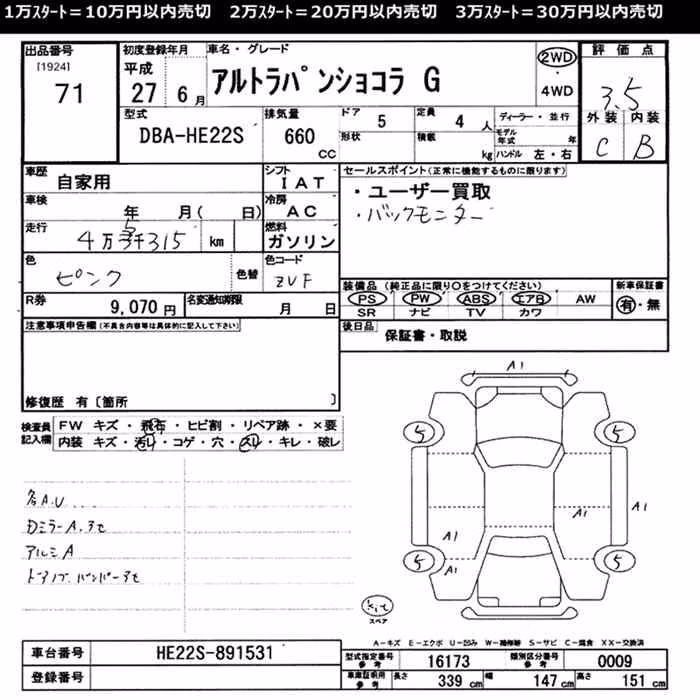 1万ｽﾀｰﾄ＝10万円以内売切　2万ｽﾀｰﾄ＝20万円以内売切　3万ｽﾀｰﾄ＝30万円以内売切
出品番号
[1924]
71
初度登録年月
平成
27 6月
車名・グレード
アルトラパンショコラ G
2WD
4WD
評価点
3.5
外装 内装
C B
型式
DBA-HE22S
排気量
660
CC
ドア 5
定員 4 人
形状
積載 kg
ディーラー・並行
モデル年式 年
ハンドル 左・右
車歴
自家用
シフト
IAT
車検
年 月( 日)
冷房
AC
走行
4万5千315 km
燃料
ガソリン
色
ピンク
色替
色コード
ZVF
R券
9,070 円
名変通知期限
月 日
セールスポイント(正常に機能するものに限ります)
・ユーザー買取
・バックモニター
装備品 (純正品に限り○をつけてください)
PS PW ABS エアB AW
SR ナビ TV カワ
新車保証書
有・無
後日品
保証書・取説
注意事項申告欄(不具合内容等は具体的に記入して下さい)
修復歴 有〔箇所 〕
検査員
記入欄
FW キズ・飛石・ヒビ割・リペア跡・×要
内装 キズ・汚レ・コゲ・穴・スレ・キレ・破レ
各A.U
Dミラー A.
アルミ A
A1
5
5
A1
A1
A1
A1
5
5
スペア
A－キズ E－エクボ U－凹み W－補修跡 S－サビ C－腐食 XX－交換済
車台番号
HE22S-891531
登録番号
型式指定番号
参考
16173
類別区分番号
参考
0009
車庫証明用
参考
長さ 339 cm
幅 147 cm
高さ 151 cm